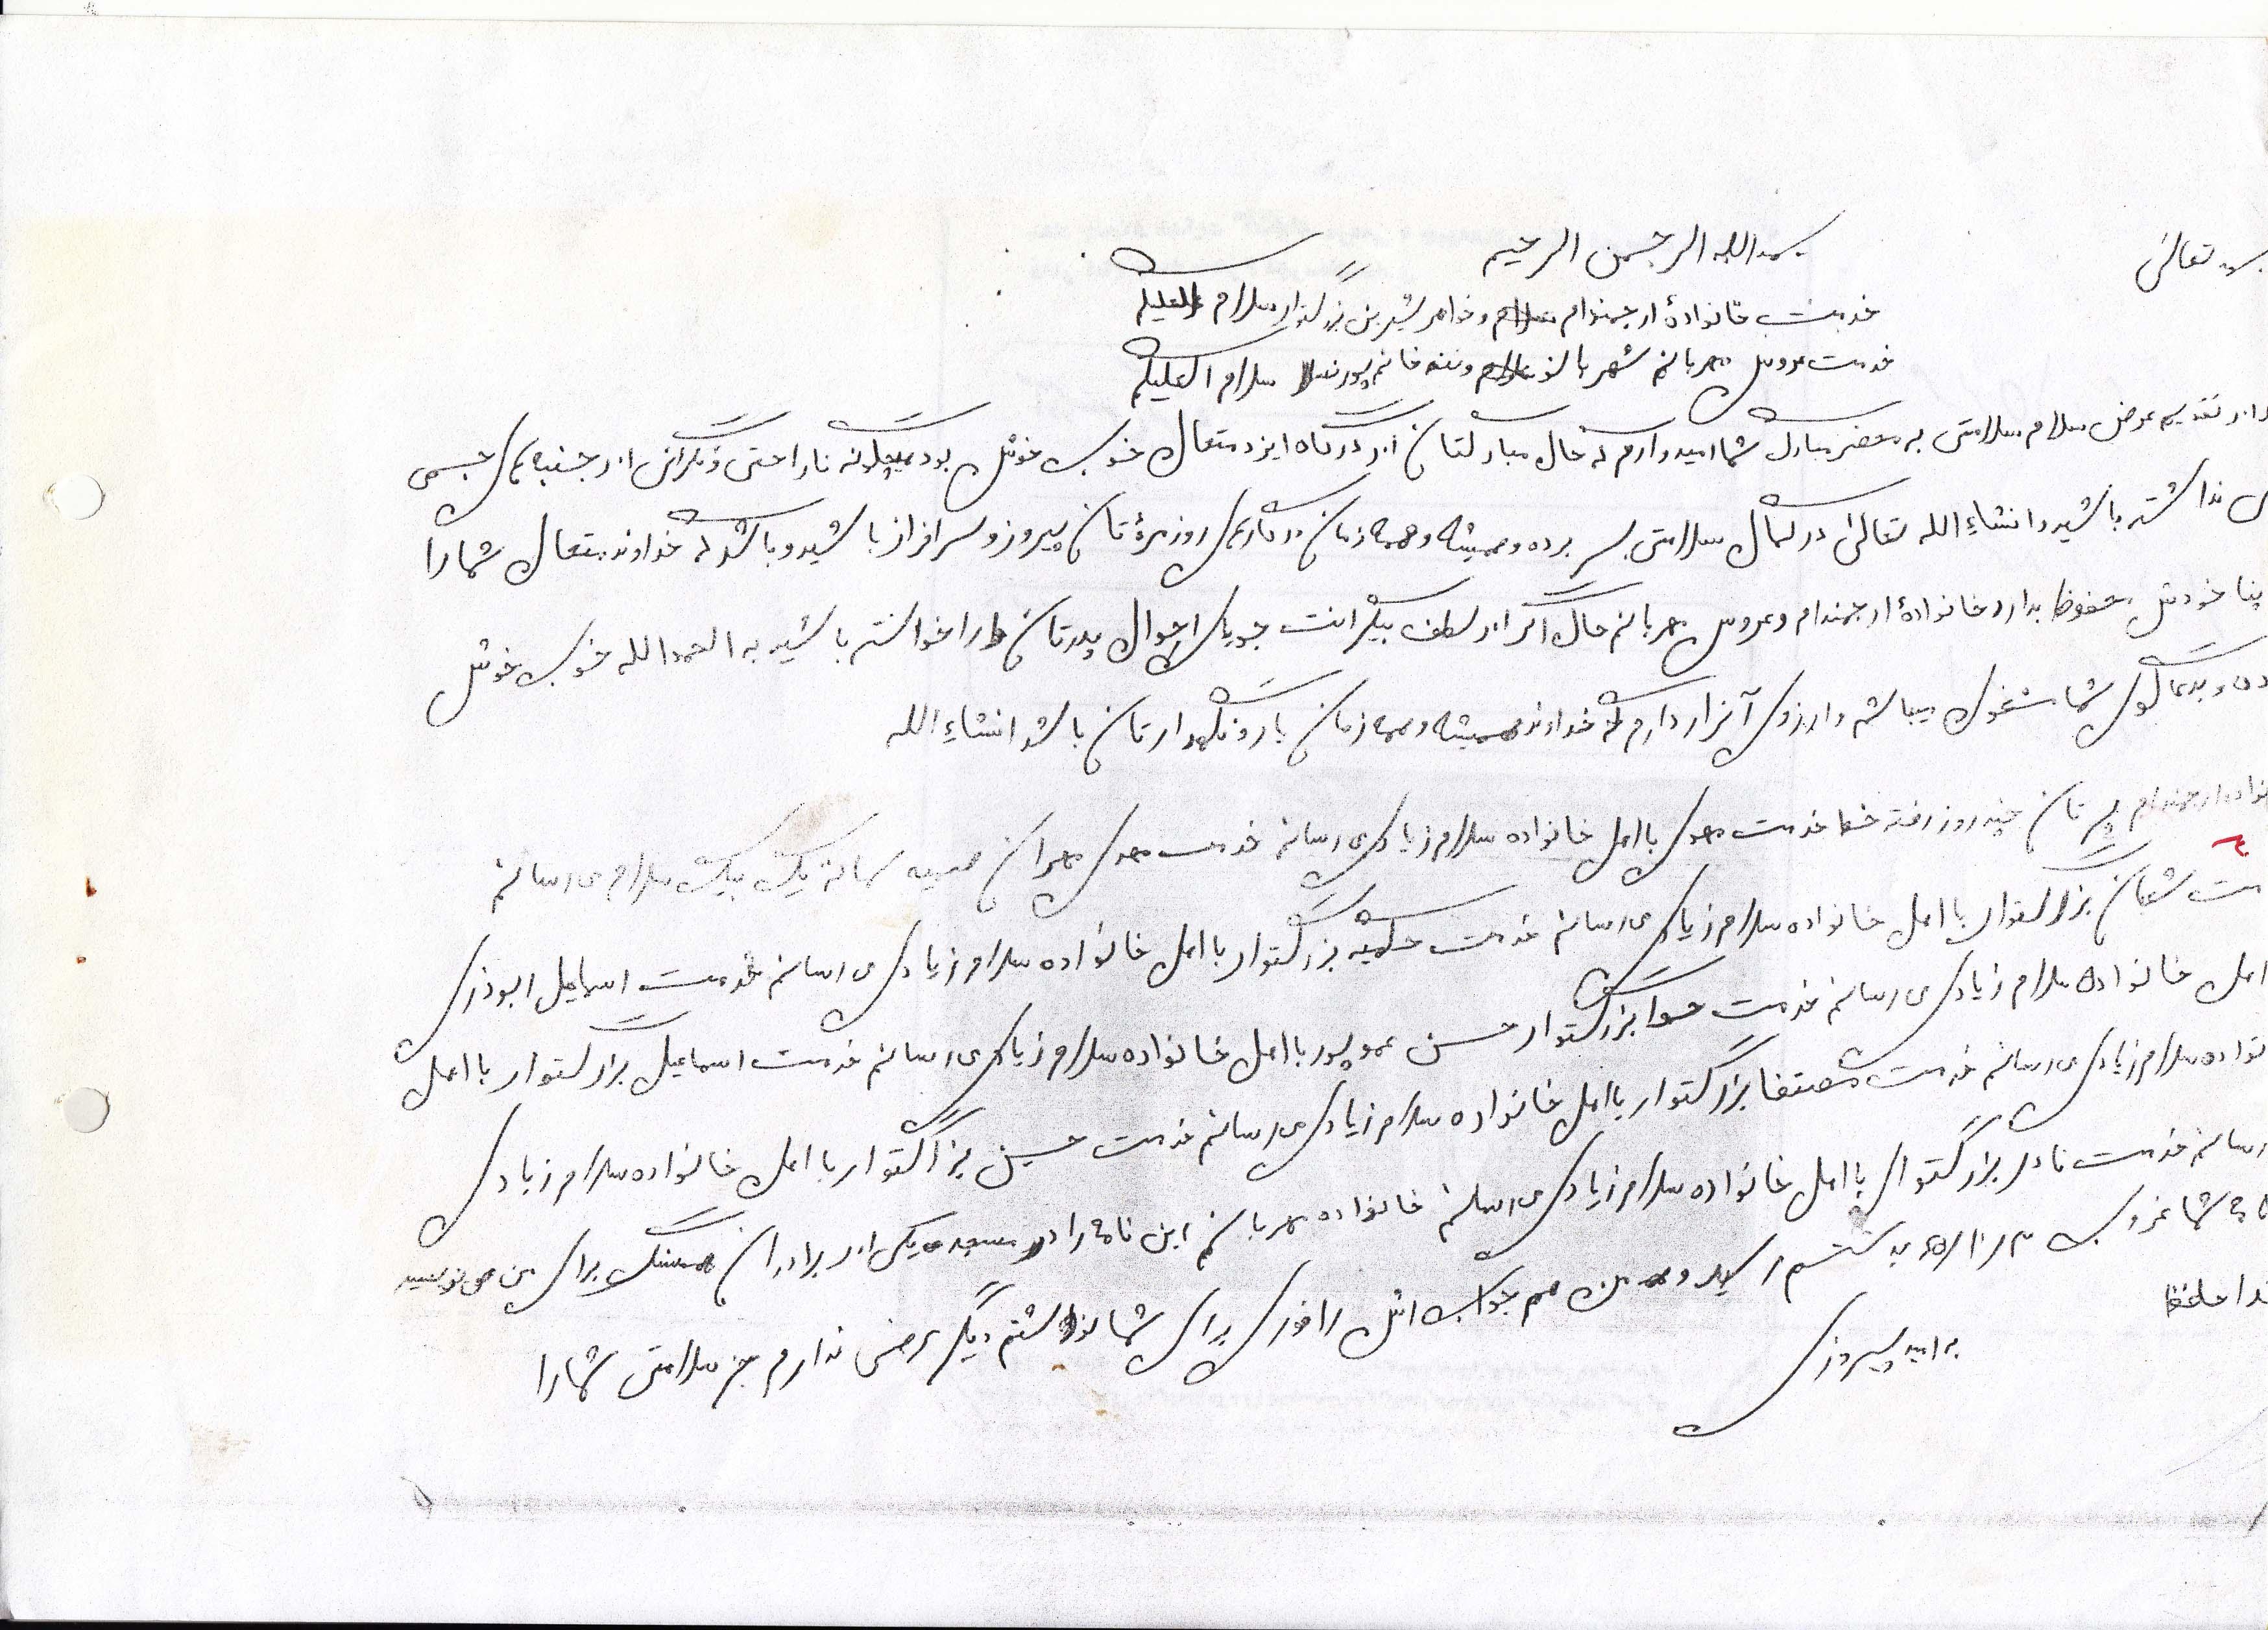 تعالی
بسم الله الرحمن الرحیم
خدمت خانوادهٔ ارجمندام و خواهر شیرین بزرگوار سلام العلیکم
خدمت عروس مهربانم شهربانو و ننه خانم پورنسا سلام العلیکم
از تقدیم عرض سلام سلامتی به محضر مبارک شما امیدوارم که حال مبارکتان از درگاه ایزد متعال خوب خوش بود هیچگونه ناراحتی و نگرانی از جنبه‌های جسمی
نداشته باشید و انشاءالله تعالی در کمال سلامتی بسر برده و همیشه و همه زمان در کارهای روزمرهٔ تان پیروز و سرافراز باشید و باشد که خداوند متعال شما را
پنا خودش محفوظ بدارد خانوادهٔ ارجمندام و عروس مهربانم حال اگر از لطف بیکرانت جویای احوال پدرتان را خواسته باشید به الحمدالله خوب خوش
شما مشغول میباشم و ارزوی آنرار دارم که خداوند همیشه و همه زمان یار و نگهدارتان باشد انشاءالله
ارجمندام تان چند روز رفته خدمت مهدی با اهل خانواده سلام زیادی می رسانم خدمت مهدی مهران سمانه یک بیک سلام می رسانم
شعبان بزرگتوار با اهل خانواده سلام زیادی می رسانم خدمت بزرگتوار با اهل خانواده سلام زیادی می رسانم خدمت اسمایل ابوذری
اهل خانواده سلام زیادی می رسانم خدمت حوا بزرگتوار حسن عمو پور با اهل خانواده سلام زیادی می رسانم خدمت اسماعیل بزرگتوار با اهل
سلام زیادی می رسانم خدمت مصتفا بزرگتوار با اهل خانواده سلام زیادی می رسانم خدمت حسین بزرگتوار با اهل خانواده سلام زیادی
رسانم خدمت نادر بزرگتوار با اهل خانواده سلام زیادی می رسانم خانواده مهربانم این نامه را در یکی از برادران برای من می نویسید
شما غروب به دستم رسید و من هم جواب اش را فوری برای شما نوشتم دیگر عرضی ندارم جز سلامتی شما را
خدا حافظ
به امید پیروزی